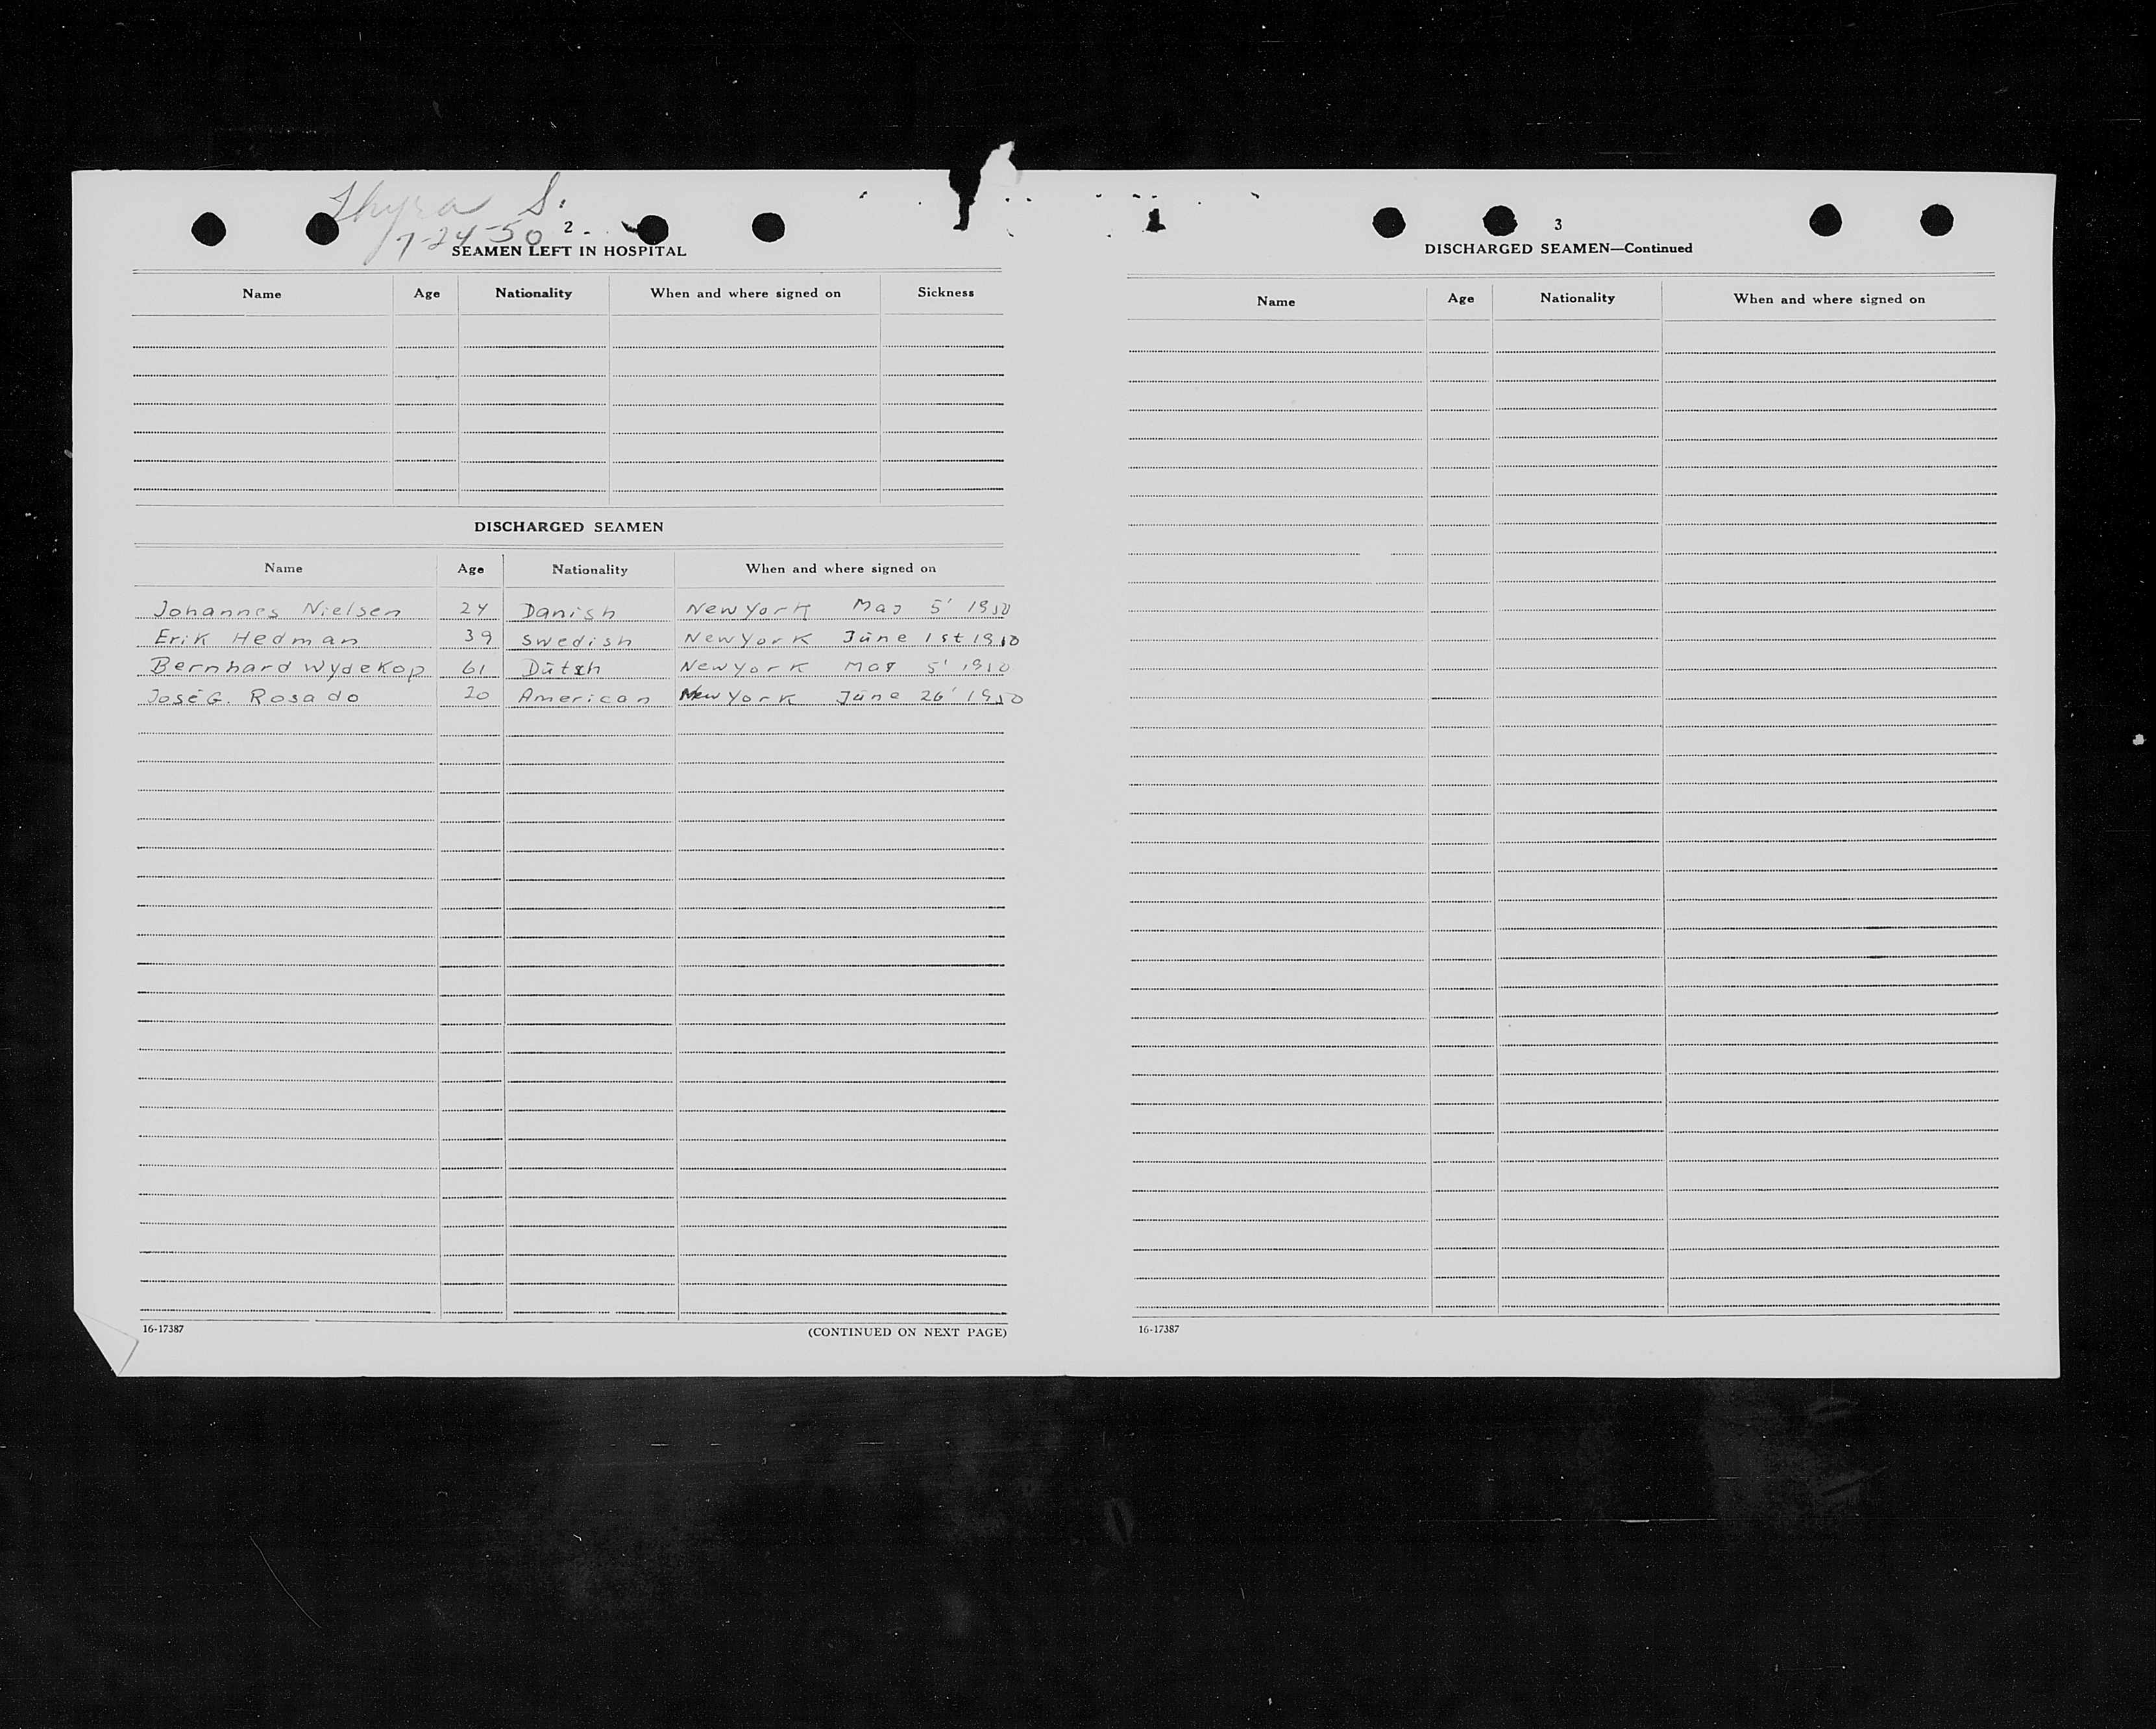 Thyra S.
7-24-50
2
SEAMEN LEFT IN HOSPITAL
Name Age Nationality When and where signed on Sickness
DISCHARGED SEAMEN
Name Age Nationality When and where signed on
Johannes Nielsen 24 Danish New York May 5' 1950
Erik Hedman 39 Swedish New York June 1st 1950
Bernhard Wydekop 61 Dutch New York May 5' 1950
José G. Rosado 20 American New York June 26' 1950
16-17387 (CONTINUED ON NEXT PAGE)
3
DISCHARGED SEAMEN—Continued
Name Age Nationality When and where signed on
16-17387